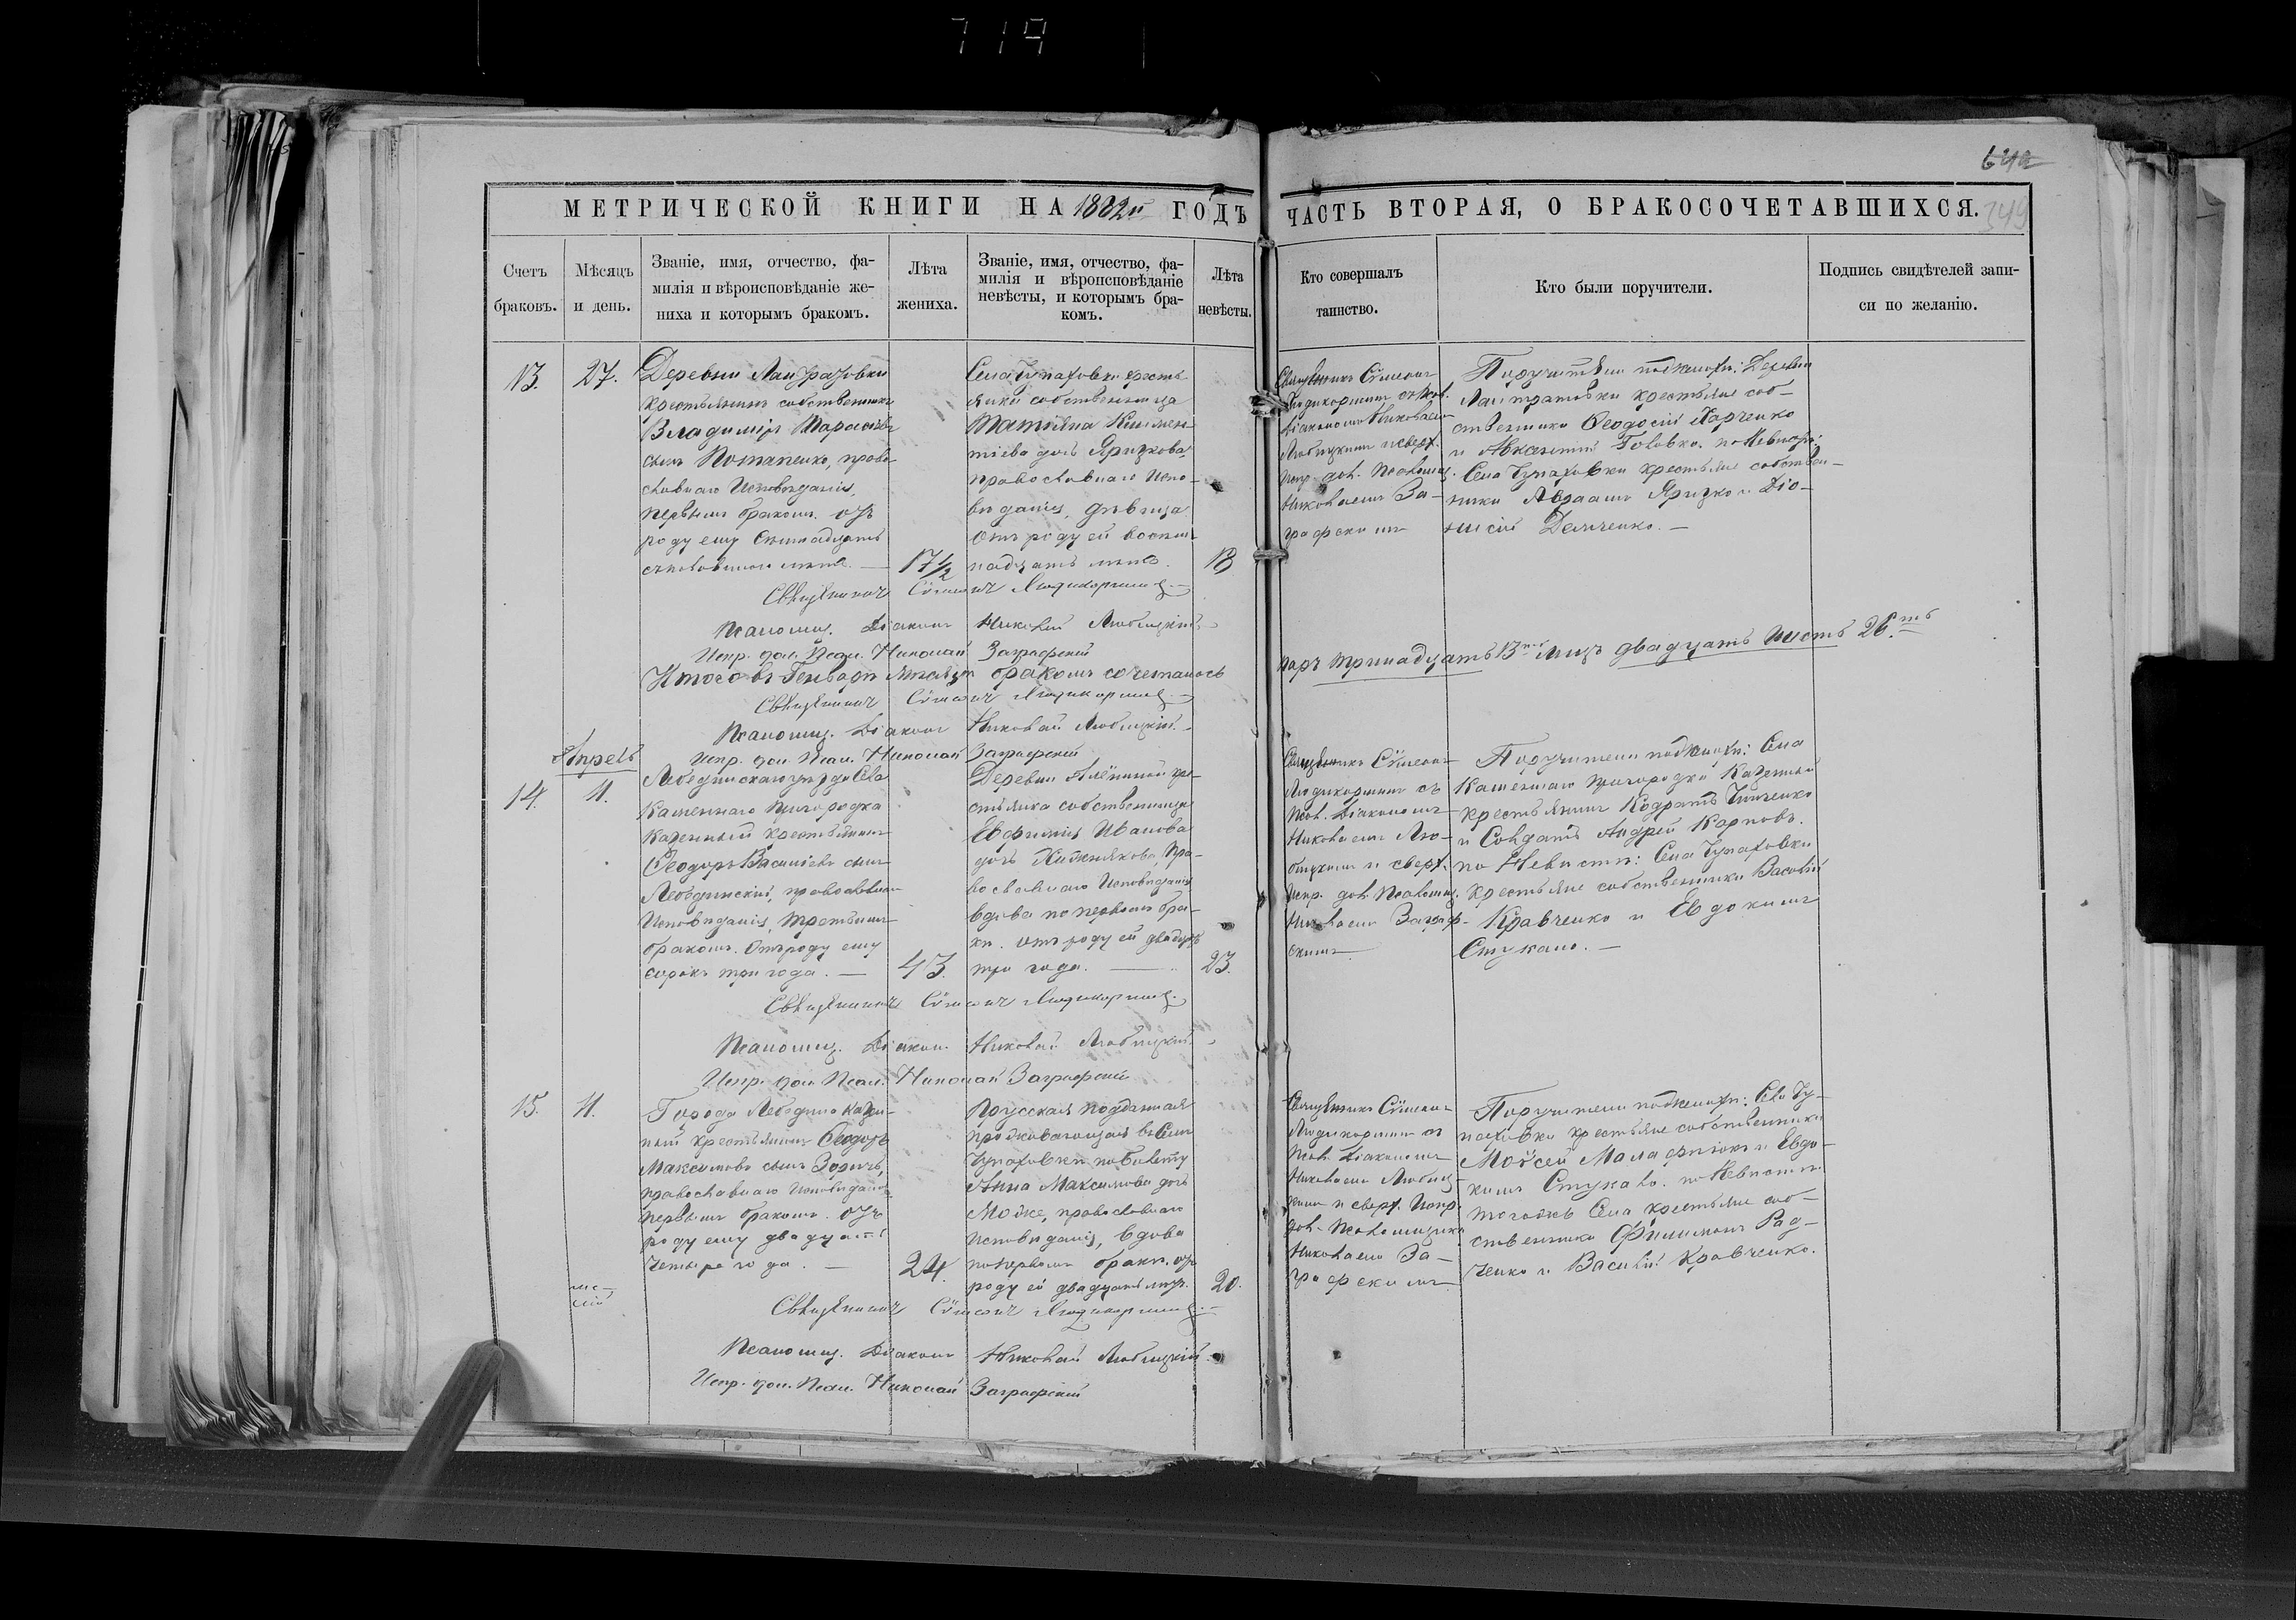 719
642
349
МЕТРИЧЕСКОЙ КНИГИ НА 1882й ГОДЪ
ЧАСТЬ ВТОРАЯ, О БРАКОСОЧЕТАВШИХСЯ.
Счетъ
браковъ.
Мѣсяцъ
и день.
Званіе, имя, отчество, фа-
милія и вѣроисповѣданіе же-
ниха и которымъ бракомъ.
Лѣта
жениха.
Званіе, имя, отчество, фа-
милія и вѣроисповѣданіе
невѣсты, и которымъ бра-
комъ.
Лѣта
невѣсты.
Кто совершалъ
таинство.
Кто были поручители.
Подпись свидѣтелей запи-
си по желанію.
13.
27.
Деревни
крестьянинъ собственникъ
Владиміръ Тарасовъ
сынъ Потапенко, право-
славнаго исповѣданія,
первымъ бракомъ. отъ
роду ему
съ половиною лѣтъ. —
17½
Села Чупаховки кресть-
янка собственница
Татіана Климен-
тіева дочьЯрицкова,
православнаго испо-
вѣданія, дѣвица
отъ роду ей восем-
надцать лѣтъ.
18
Священникъ Сѵмеонъ
съ псал.
Діакономъ Николаемъ
Любицкимъ и сверх.
испр. дол. псаломщ.
Николаемъ За-
графскимъ
Поручители по женихѣ: Деревни
крестьяне соб-
ственники Ѳеодосій Харченко
и Авксентій Головко. по невѣстѣ:
Села Чупаховки крестьяне собствен-
ники АвраамъЯрицко и Діо-
нисій Демченко. —
Священникъ Сѵмеонъ
Псаломщ. Діаконъ Николай Любицкій
Испр. дол. Псал. Николай Заграфскій
Итого въ Генварѣ мѣсяцѣ бракомъ сочеталось
паръ тринадцать 13ть лицъ двадцать шесть 26.ть
Священникъ Сѵмеонъ
Псаломщ. Діаконъ Николай Любицкій.
Испр. дол. Псал. Николай Заграфскій
Апрель
14.
11.
Лебединскаго уѣзда Села
Каменнаго пригородка
казенный крестьянинъ
Ѳеодоръ Васильевъ сынъ
Лебединскій, православнаго
исповѣданія, третьимъ
бракомъ. Отъ роду ему
сорокъ три года. —
43.
Деревни Алёшиной кре-
стьянка собственница
Евфимія Иванова
дочь Хижнякова, пра-
вославнаго исповѣданія
вдова по первомъ бра-
кѣ. отъ роду ей двадцать
три года. —
23.
Священникъ Сѵмеонъ
съ
псал. Діакономъ
Николаемъ Лю-
бицкимъ и сверх.
испр. дол. псаломщ.
Николаемъ Заграф-
скимъ
Поручители по женихѣ: Села
Каменнаго пригородка казенный
крестьянинъ Кодратъ
и Солдатъ Андрей Карповъ.
по невѣстѣ: Села Чупаховки
крестьяне собственники Василій
Кравченко и Евдокимъ
Стукало. —
Священникъ Сѵмеонъ
Псаломщ. Діаконъ Николай Любицкій
Испр. дол. Псал. Николай Заграфскій
15.
11.
Города Лебедина казен-
ный крестьянинъ Ѳеодоръ
Максимовъ сынъ
православнаго исповѣданія
первымъ бракомъ. отъ
роду ему двадцать
четыре года. —
24.
Прусская подданная
проживающая въ Селѣ
Чупаховкѣ по билету
Анна Максимова дочь
православнаго
исповѣданія, вдова
по первомъ бракѣ. отъ
роду ей двадцать лѣтъ.
20.
Священникъ Сѵмеонъ
съ
псал. Діакономъ
Николаемъ Любиц-
кимъ и сверх. испр.
дол. псаломщика
Николаемъ За-
графскимъ
Поручители по женихѣ: Села Чу-
паховки крестьяне собственники
Моѵсей и Евдо-
кимъ Стукало. по невѣстѣ:
тогожъ Села крестьяне соб-
ственники Филимонъ Рад-
ченко и Василій Кравченко.
Священникъ Сѵмеонъ
Псаломщ. Діаконъ Николай Любицкій
Испр. дол. Псал. Николай Заграфскій